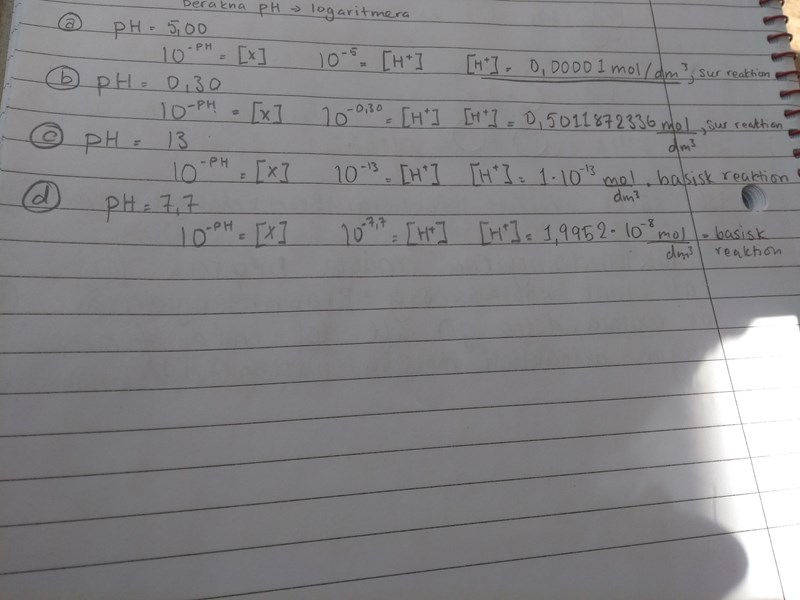 Beräkna pH → logaritmera
ⓐ pH = 5,00
10^-PH = [x] 10^-5 = [H⁺] [H⁺] = 0,00001 mol/dm³, sur reaktion
ⓑ pH = 0,30
10^-PH = [x] 10^-0,30 = [H⁺] [H⁺] = 0,5011872336 mol/dm³, sur reaktion
ⓒ pH = 13
10^-PH = [x] 10^-13 = [H⁺] [H⁺] = 1·10^-13 mol/dm³ . basisk reaktion
ⓓ pH = 7,7
10^-PH = [x] 10^-7,7 = [H⁺] [H⁺] = 1,9952·10^-8 mol/dm³ = basisk
reaktion